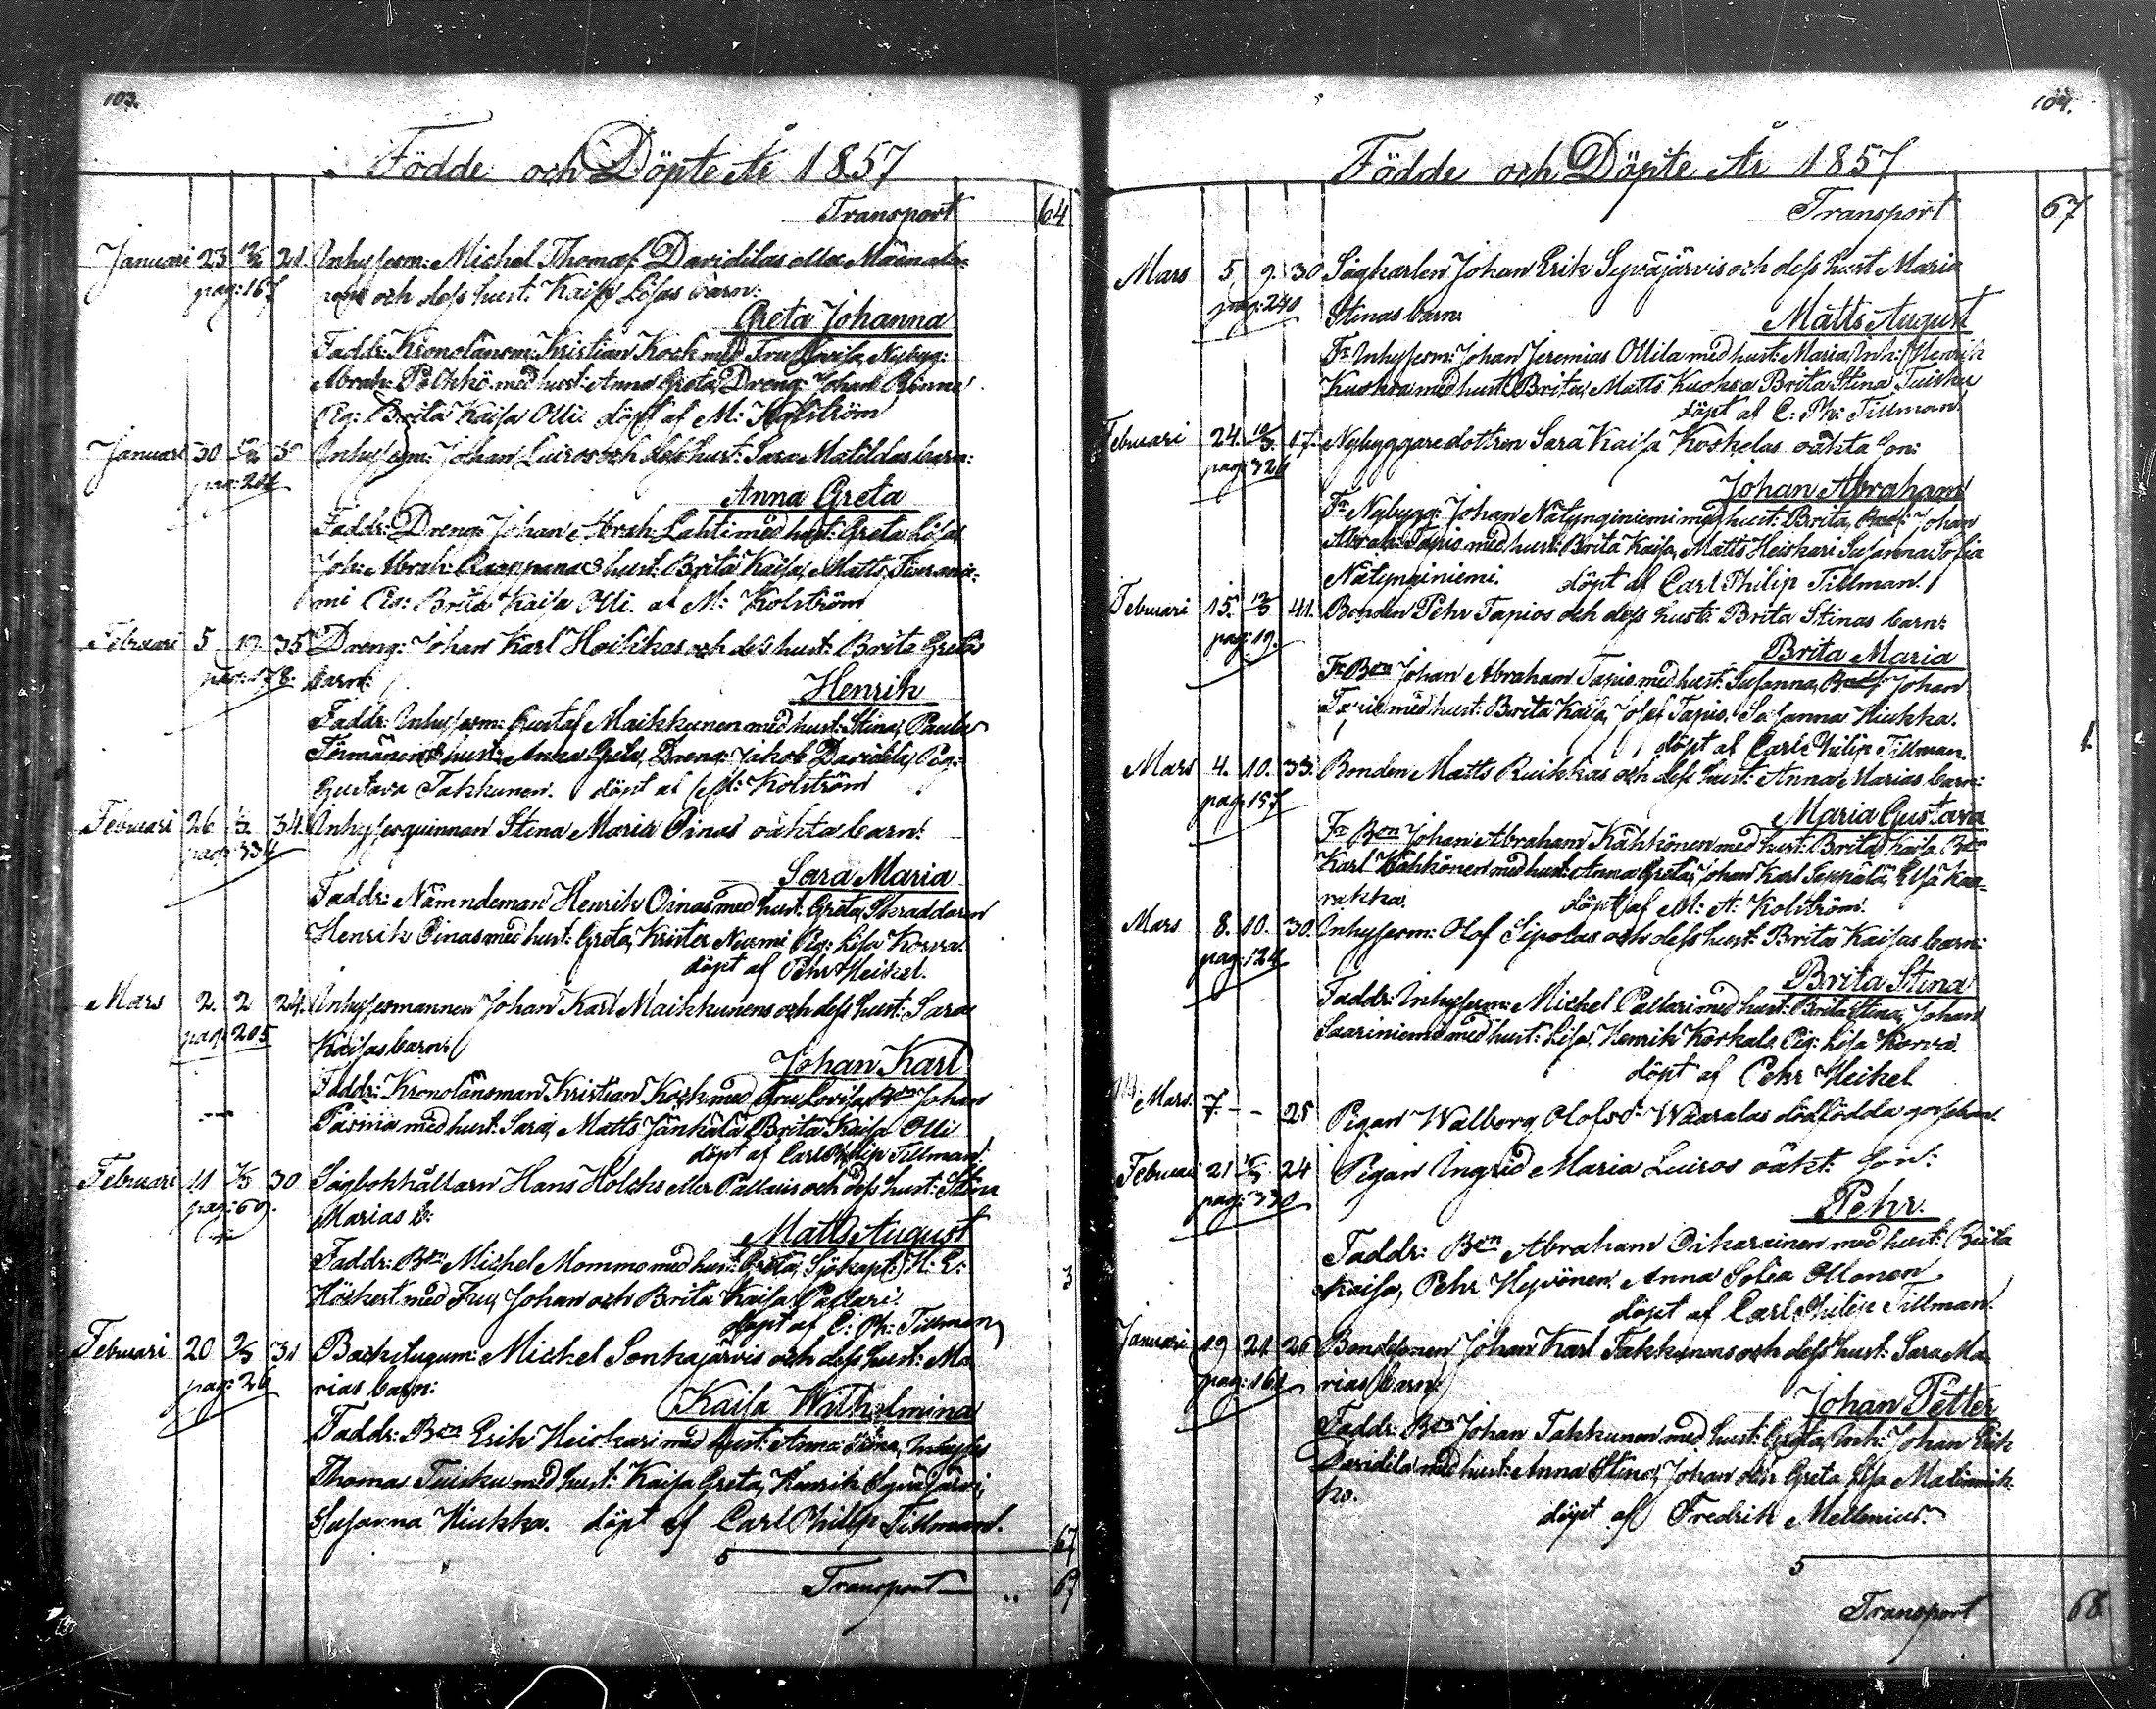 103.
Födde och Döpte År 1857
Transport 64
Januari 23 21 Inhysesm: Michel Thomas Davidilas eller
pag: 167 och dess hust: Kaisa Lisas barn:
Greta Johanna
Faddr: Kronolänsm: Kristian Kock med Fru Lovisa, Nybyg:
Abrah: Pelkkö med hust: Anna Greta, Dreng: Johan Rinne
Pig: Brita Kaisa Olli döpt af M: Kolström
Januari 30 Inhysesm: Johan Luiros och dess hust: Sara Matildas barn:
pag:
Anna Greta
Faddr: Dreng: Johan Abrah: Lahti med hust: Greta Lisa,
Joh: Abrah: hust: Brita Kaisa, Matts
mi Pig: Brita Kaisa Olli af M: Kolström
Februari 5 19 35 Dreng: Johan Karl Hoikkas och dess hust: Brita Gretas
barn:
Henrik
Faddr: Inhysesm: Gustaf Maikkunen med hust: Stina, Paulus
Törmänen & hust: Anna Greta, Dreng: Jakob Davidila, Pig:
Gustava Takkunen. döpt af M: Kolström
Februari 26 1/3 34. Inhysesquinnan Stina Maria Oinas oäkta barn:
pag: 334
Sara Maria
Faddr: Nämndeman Henrik Oinas med hust: Greta, Skraddaren
Henrik Oinas med hust: Greta, Krister Nurmi Pig: Lisa Korva.
döpt af Pehr Heikel.
Mars 2. 2 24. Inhysesmannen Johan Karl Maikkunens och dess hust: Sara
pag: 205 Kaisas barn:
Johan Karl
Faddr: Kronolänsman Kristian Kock med Fru Lovisa, Bon Johan
med hust: Sara, Matts Jänkälä Brita Kaisa Olli
döpt af Carl Philip Tillman.
Februari 11 30 Sågbokhållarn Hans Holcks eller Pallaris och dess hust: Stina
pag: 69. Marias b:
Matts August
Faddr: Bon Michel Mommo med hust: Greta, Sjökapt: H: E:
Höckert med Fru, Johan och Brita Kaisa Pallari.
döpt af C: Ph: Tillman
3
Februari 20 31 Backstugum: Michel Sonkajärvis och dess hust: Ma
pag: 26 rias barn:
Kaisa Wilhelmina
Faddr: Bon Erik Heiskari med hust: Anna Stina, Inhyses
Thomas Tuisku med hust: Kaisa Greta, Henrik Syväjärvi,
Susanna Hiukka. döpt af Carl Philip Tillman.
5 67
Transport 67
104.
Födde och Döpte År 1857
Transport 67
Mars 5 9. 30 Sågkarlen Johan Erik Syväjärvis och dess hust Maria
pag: 240 Stinas barn:
Matts August
Fr Inhysesm: Johan Jeremias Ollila med hust: Maria, Inh: Henrik
Kuoksa med hust Brita, Matts Kuoksa Brita Stina Tuisku
döpt af C: Ph: Tillman.
Februari 24. 10/3. 17. Nybyggaredottren Sara Kaisa Koskelas oäkta Son:
pag: 321
Johan Abraham
Fr Nybygg: Johan Nätynginiemi med hust: Brita, Johan
Abrah: Tapio med hust: Brita Kaisa, Matts Heiskari Susanna Sofia
Nätynginiemi. döpt af Carl Philip Tillman.
Februari 15. 41. Bonden Pehr Tapios och dess hust: Brita Stinas barn:
pag: 19.
Brita Maria
Fr Bon Johan Abraham Tapio med hust: Susanna, Johan
Tapio med hust: Brita Kaisa, Josef Tapio. Susanna Hiukka.
döpt af Carl Philip Tillman.
1.
Mars 4. 10. 33. Bonden Matts Ruikkas och dess hust: Anna Marias barn:
pag: 157
Maria Gustava
Fr Bon Johan Abraham Kähkönen med hust: Brita Kaisa, Bon
Karl Kähkönen med hust: Anna Greta, Johan Karl Seppälä, Elsa Kaa-
rakka. döpt af M: A: Kolström.
Mars 8. 10. 30. Inhysesm: Olof Sipolas och dess hust: Brita Kaisas barn:
pag: 124
Brita Stina
Faddr: Inhysesm: Michel Pallari med hust: Brita Stina, Johan
Saariniemi med hust: Lisa. Henrik Korkala. Pig: Lisa Korva.
döpt af Pehr Heikel
Mars. 7. - - 25 Pigan Walborg Olofsd: Waaralas dödfödda gossebarn.
Februari 21 24 Pigan Ingrid Maria Luiros oäkt: Son:
pag: 330
Pehr.
Faddr: Bon Abraham Oikarainen med hust: Brita
Kaisa, Pehr Hyvönen. Anna Sofia Ollonen
döpt af Carl Philip Tillman.
Januari 19 21 26 Bondesonen Johan Karl Takkunens och dess hust: Sara Ma-
pag: 161 rias barn:
Johan Petter
Faddr: Bon Johan Takkunen med hust: Greta, Inh: Johan Erik
Davidila med hust: Anna Stina, Johan och Greta Lisa
ko.
döpt af Fredrik Mellenius.
5
Transport 68